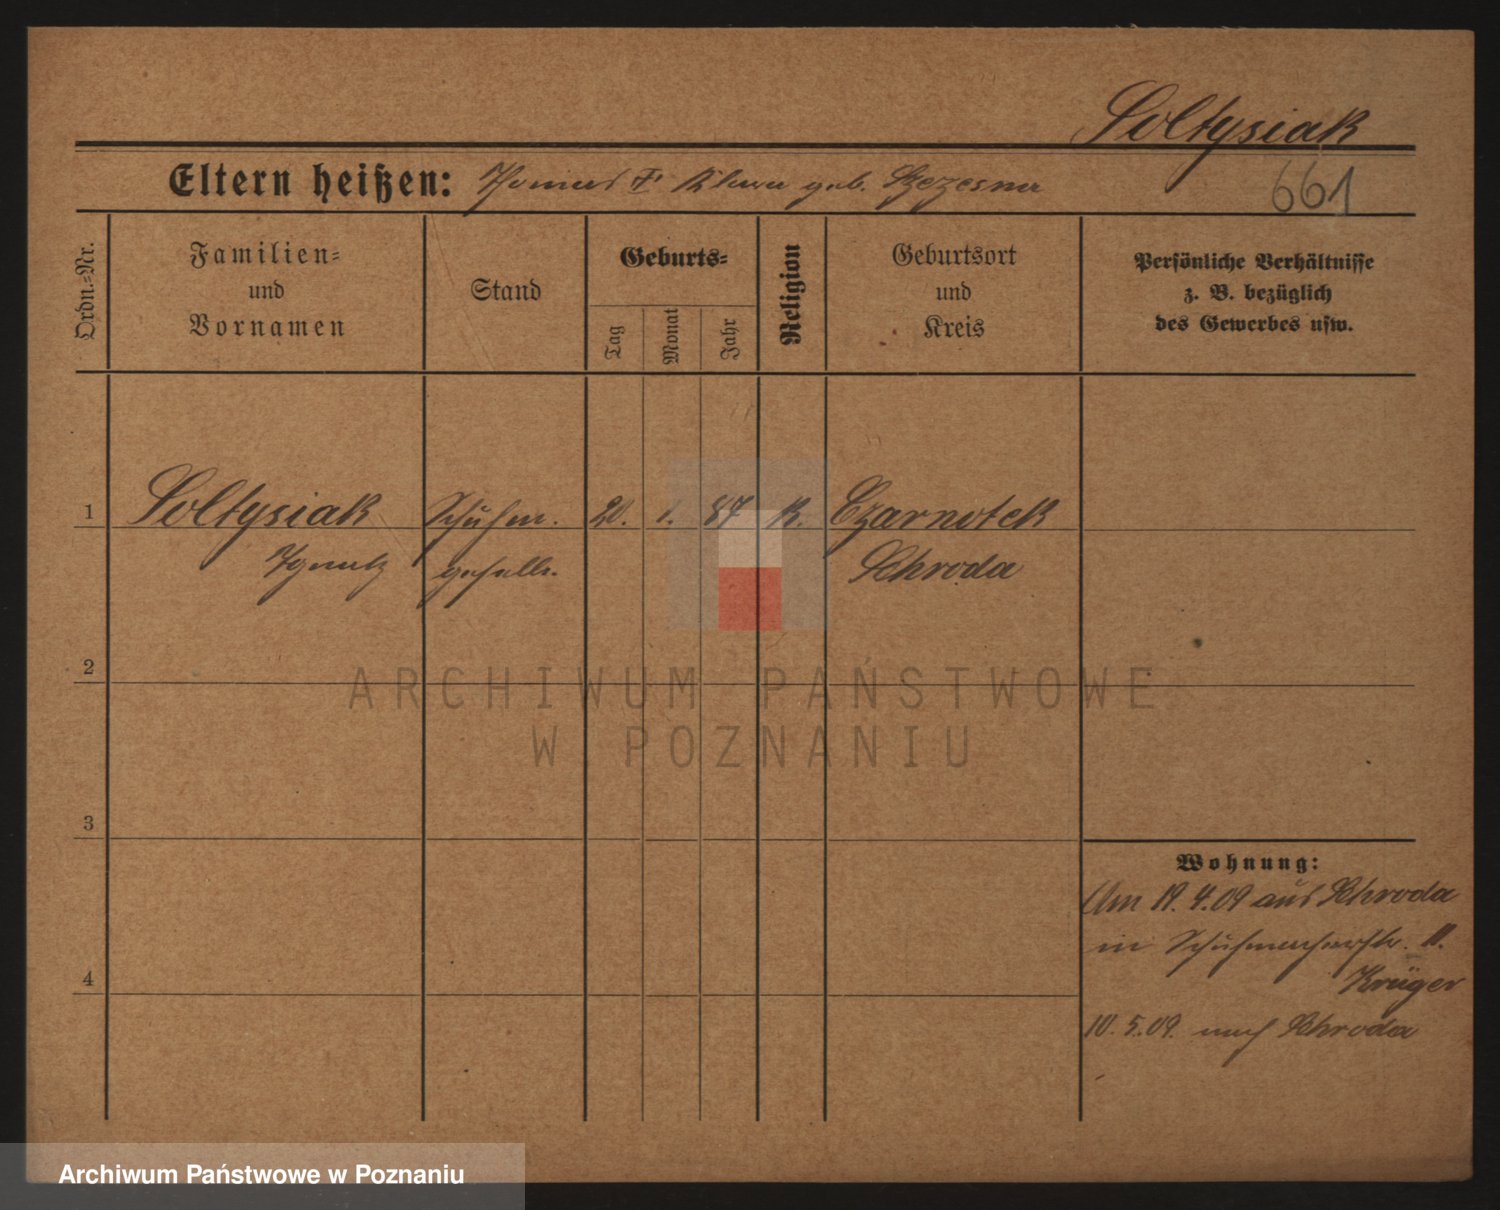 Soltysiak
Eltern heißen: Thomas † Klara geb. Szczesna
661
Ordn.=Nr.
Familien=
und
Vornamen
Stand
Geburts=
Tag
Monat
Jahr
Religion
Geburtsort
und
Kreis
Persönliche Verhältnisse
z. B. bezüglich
des Gewerbes usw.
1 Soltysiak Schuhm. 20. 1. 87 K. Czarnotek
Ignatz geselle. Schroda
2
3
4
Wohnung:
Am 19.4.09 aus Schroda
in Schuhmacherstr. 11.
Krüger
10.5.09. nach Schroda
ARCHIWUM PAŃSTWOWE
W POZNANIU
Archiwum Państwowe w Poznaniu